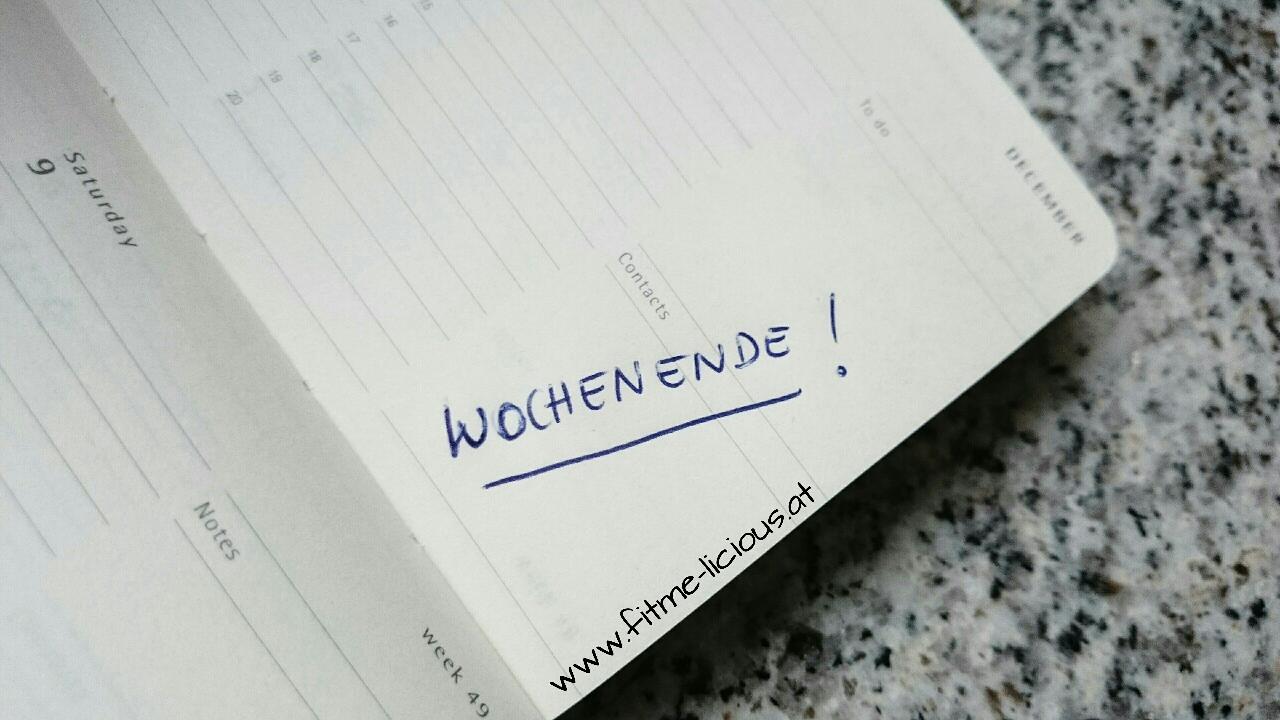 Saturday
9
Notes
week 49
15
16
17
18
19
20
To do
DECEMBER
Contacts
WOCHENENDE !
www.fitme-licious.at